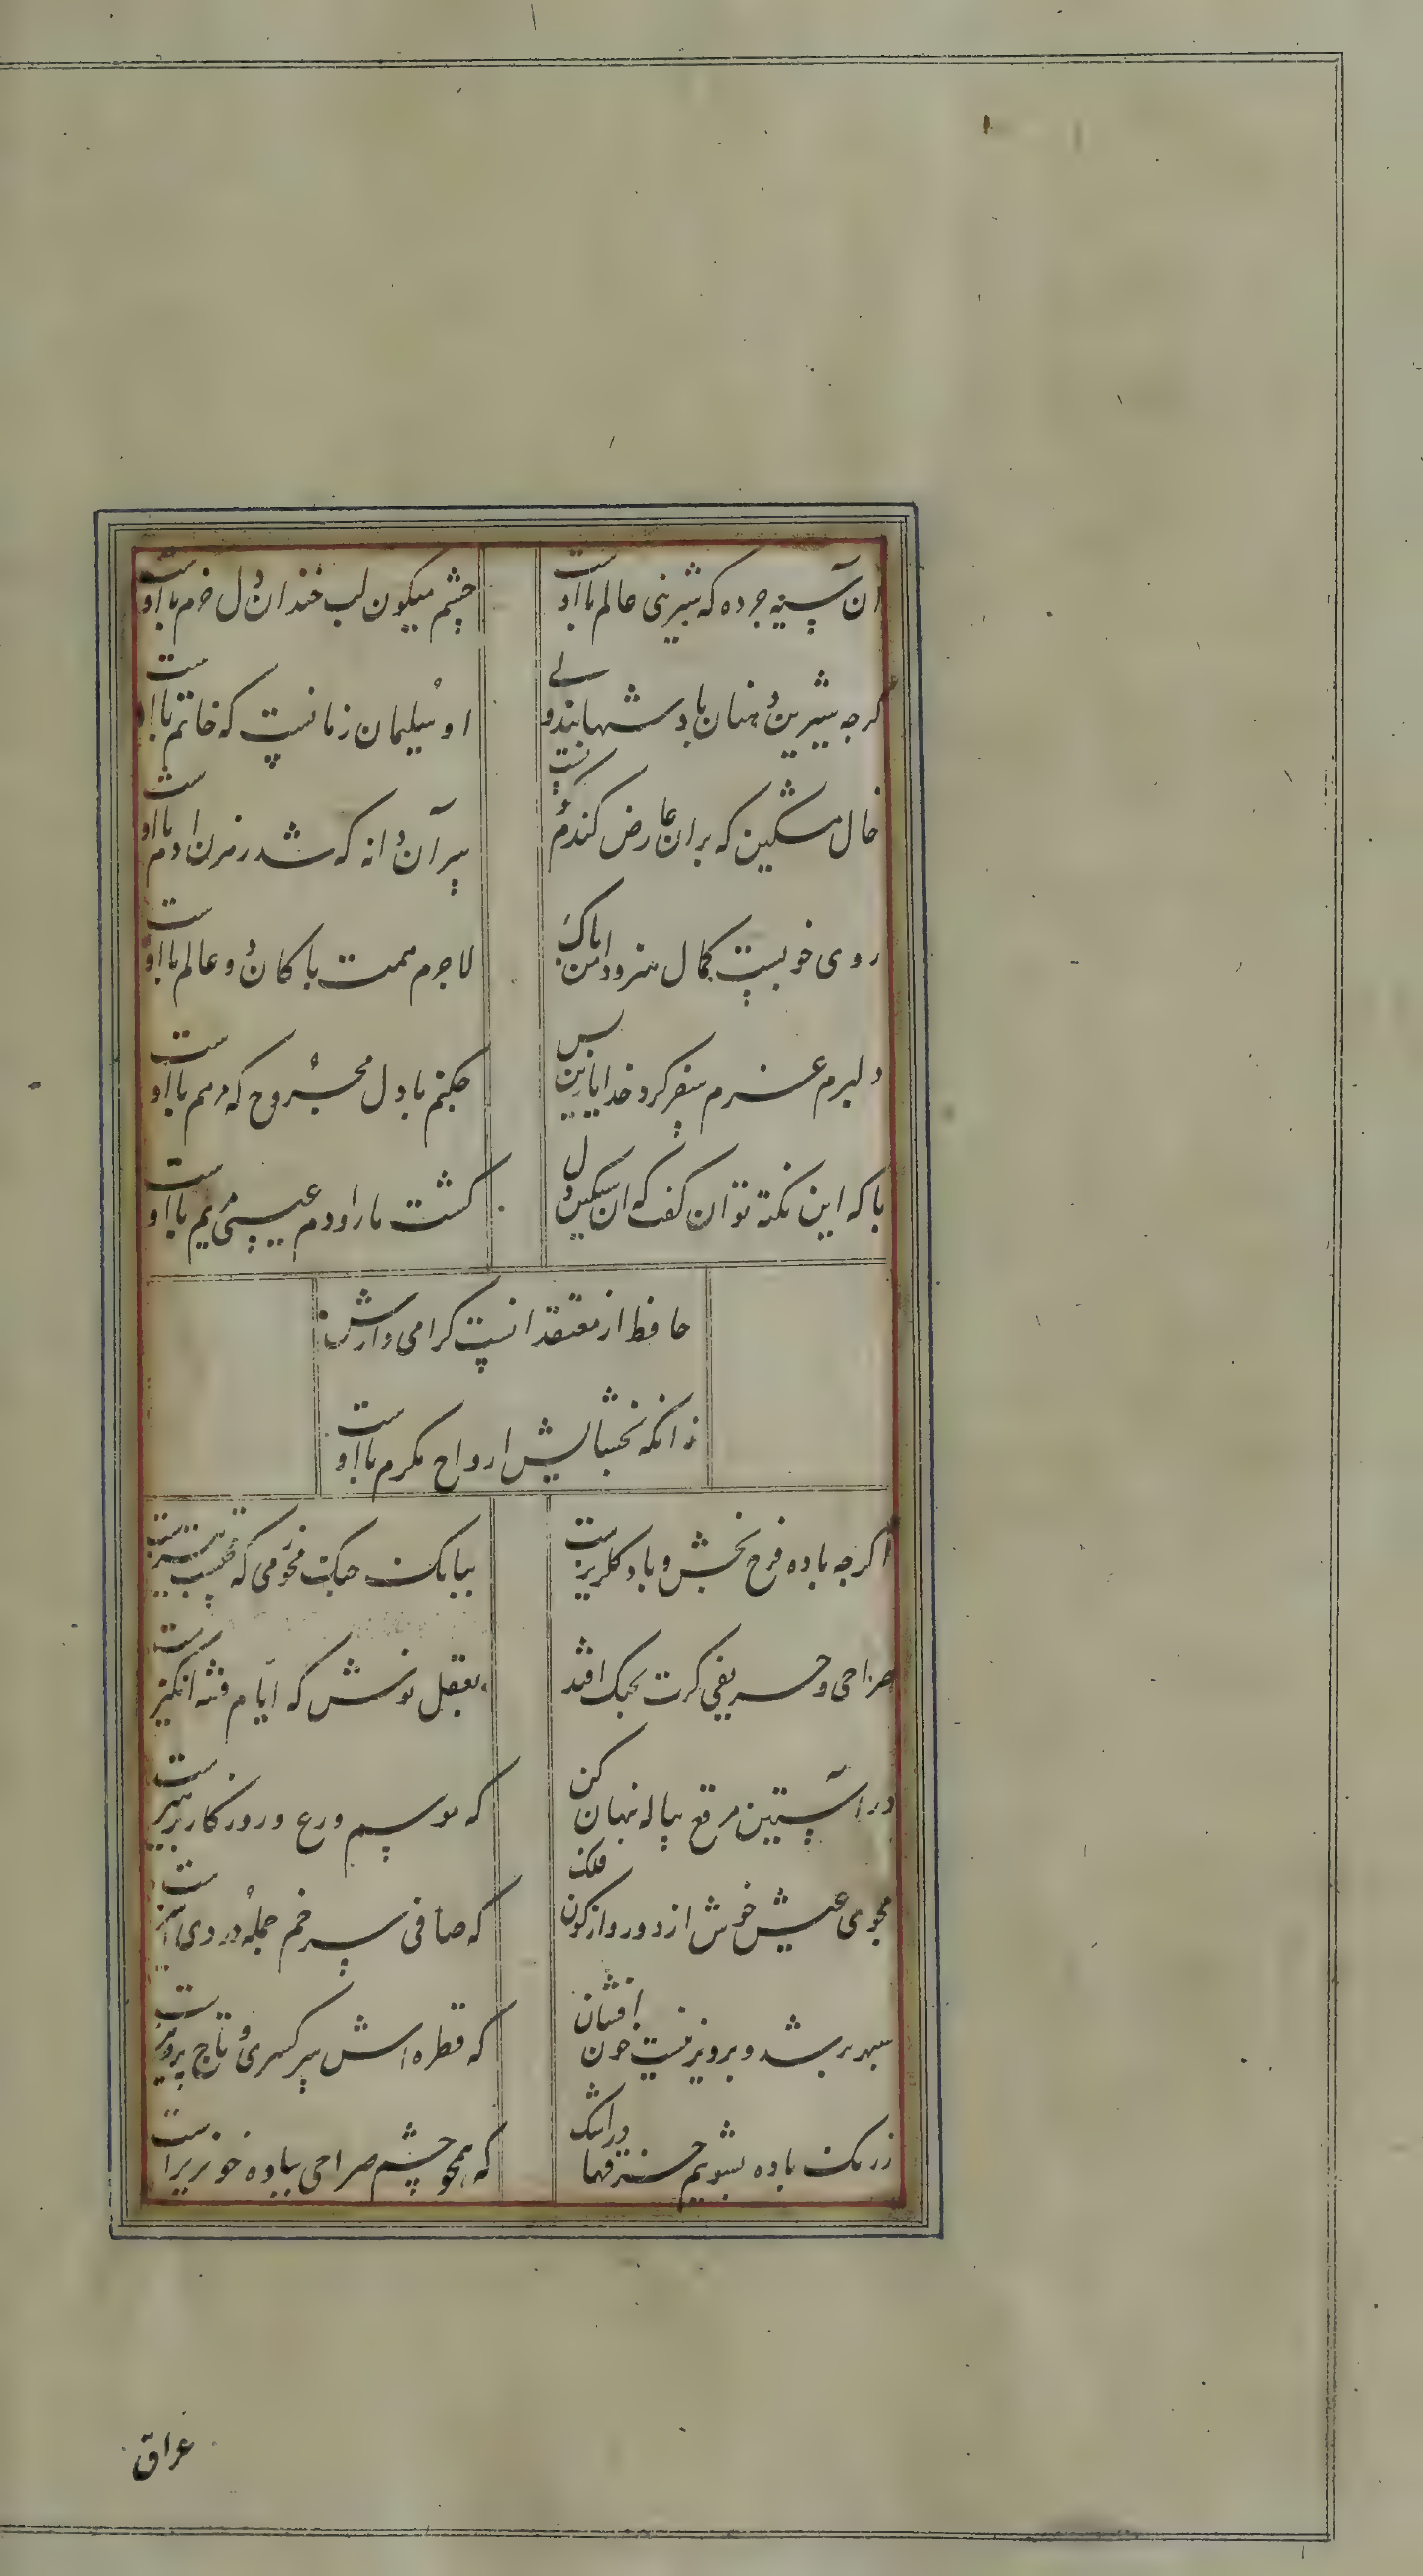 آن سیه جرده که شیرینی عالم با اوست
چشم میکون لب خندان دل خرم با اوست
کرجه شیرین دهنان بادشهانند ولے
او سلیمان زمانست که خاتم با اوست
خال مشکین که بران عارض کندم کونست
سر آن دانه که شد رهزن ادم با اوست
روی خوبست کمال هنر و دامن باک
لاجرم همت باکان دو عالم با اوست
دلبرم عزم سفر کرد خدایا یاران
جکنم با دل مجروح که مرهم با اوست
با که این نکته توان کفت که ان سنکین دل
کشت ما را و دم عیسی مریم با اوست
حافظ از معتقدانست کرامی دارش
زانکه بخشایش ارواح مکرم با اوست
اکرجه باده فرح بخش و باد کلریزست
ببانک جنک مخور می که محتسب تیزست
صراحی و حریفی کرت بجنک افتد
بعقل نوش که ایام فتنه انکیزست
در آستین مرقع پیاله نهان کن
که موسم ورع و روزکار برهیزست
مجوی عیش خوش از دور واژکون فلک
که صافی سر خم جمله دردی امیزست
سبهر بر شده برویزنیست خون افشان
که قطره اش سر کسری و تاج پرویزست
ز رنک باده بشویم خرقها در اشک
که همجو چشم صراحی بباده خونریزاست
عراق